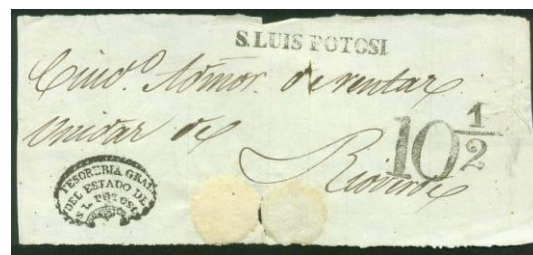 S. LUIS POTOSI
Ciud.º Admor. de rentas
unidas de
10 1/2
Rioverde
TESORERIA GRAL
DEL ESTADO DE
S. L. POTOSI